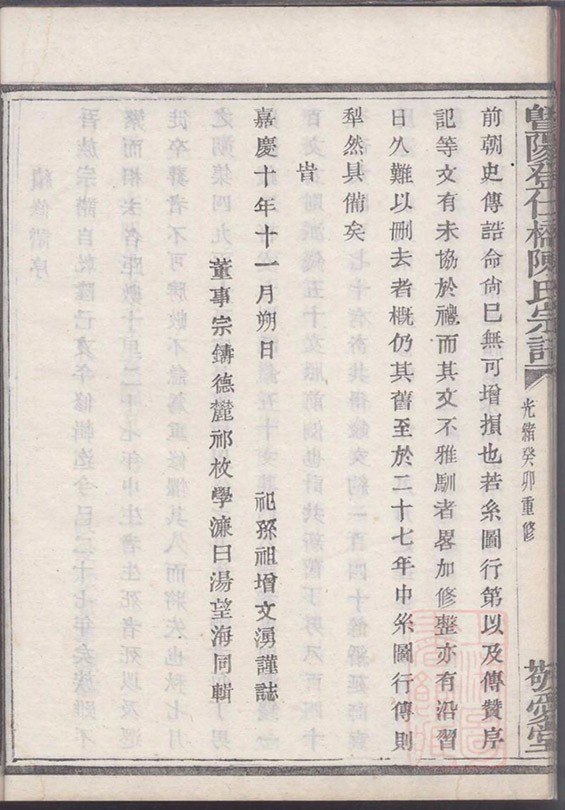 暨陽登仕橋陳氏宗譜
光緒癸卯重修
敬愛堂
前朝史傳誥命尙已無可增損也若系圖行第以及傳贊序
記等文有未協於禮而其文不雅馴者畧加修整亦有沿習
日久難以刪去者概仍其舊至於二十七年中系圖行傳則
犁然具備矣
旹
嘉慶十年十一月朔日 祀孫祖增文湧謹誌
董事宗鑄德麓祁枚學濂曰湯望海同輯